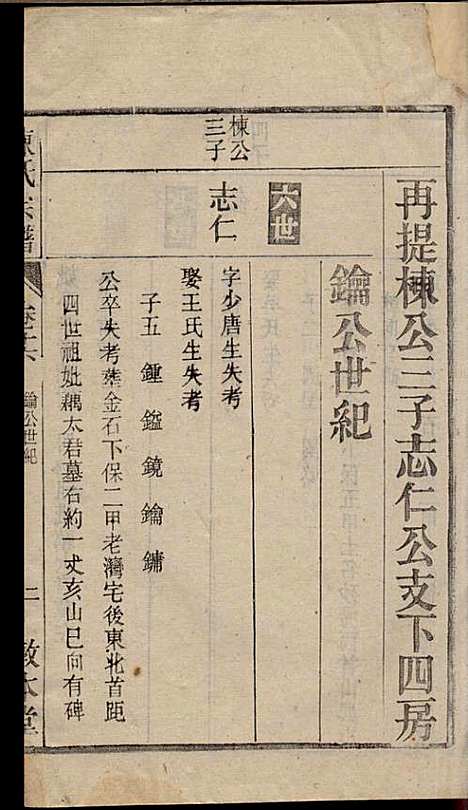 再提棟公三子志仁公支下四房
鑰公世紀
六世
棟公
三子
志仁
字少唐生失考
娶王氏生失考
子五 鍾 鎰 鏡 鑰 鏞
公卒失考葬金石下保二甲老灣宅後東北首距
四世祖妣耦太君墓右約一丈亥山巳向有碑
陳氏宗譜
鑰公世紀
二
敦本堂